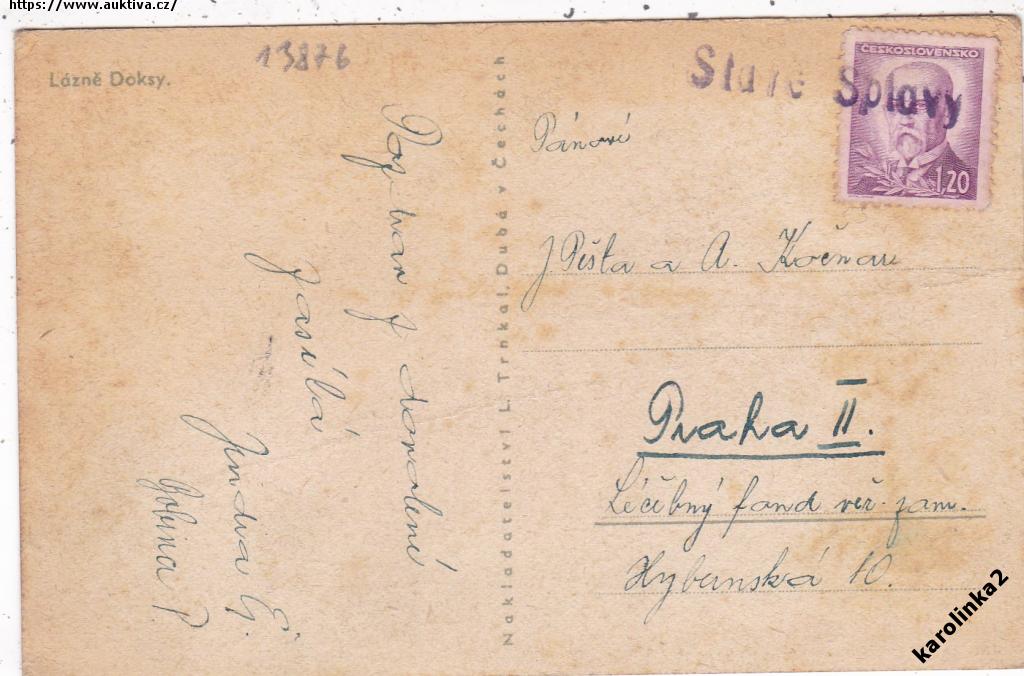 https://www.auktiva.cz/
13876
Lázně Doksy.
Stare Splavy
ČESKOSLOVENSKO
1,20
Pozdrav z dovolené
zasílá
Jindra
P.
Nakladatelství L. Trnka l. Dubá v Čechách
Pánové
J. Pešta a A. Kočnar
Praha II.
Léčebný fond veř. zam.
Hybernská 10.
karolinka2